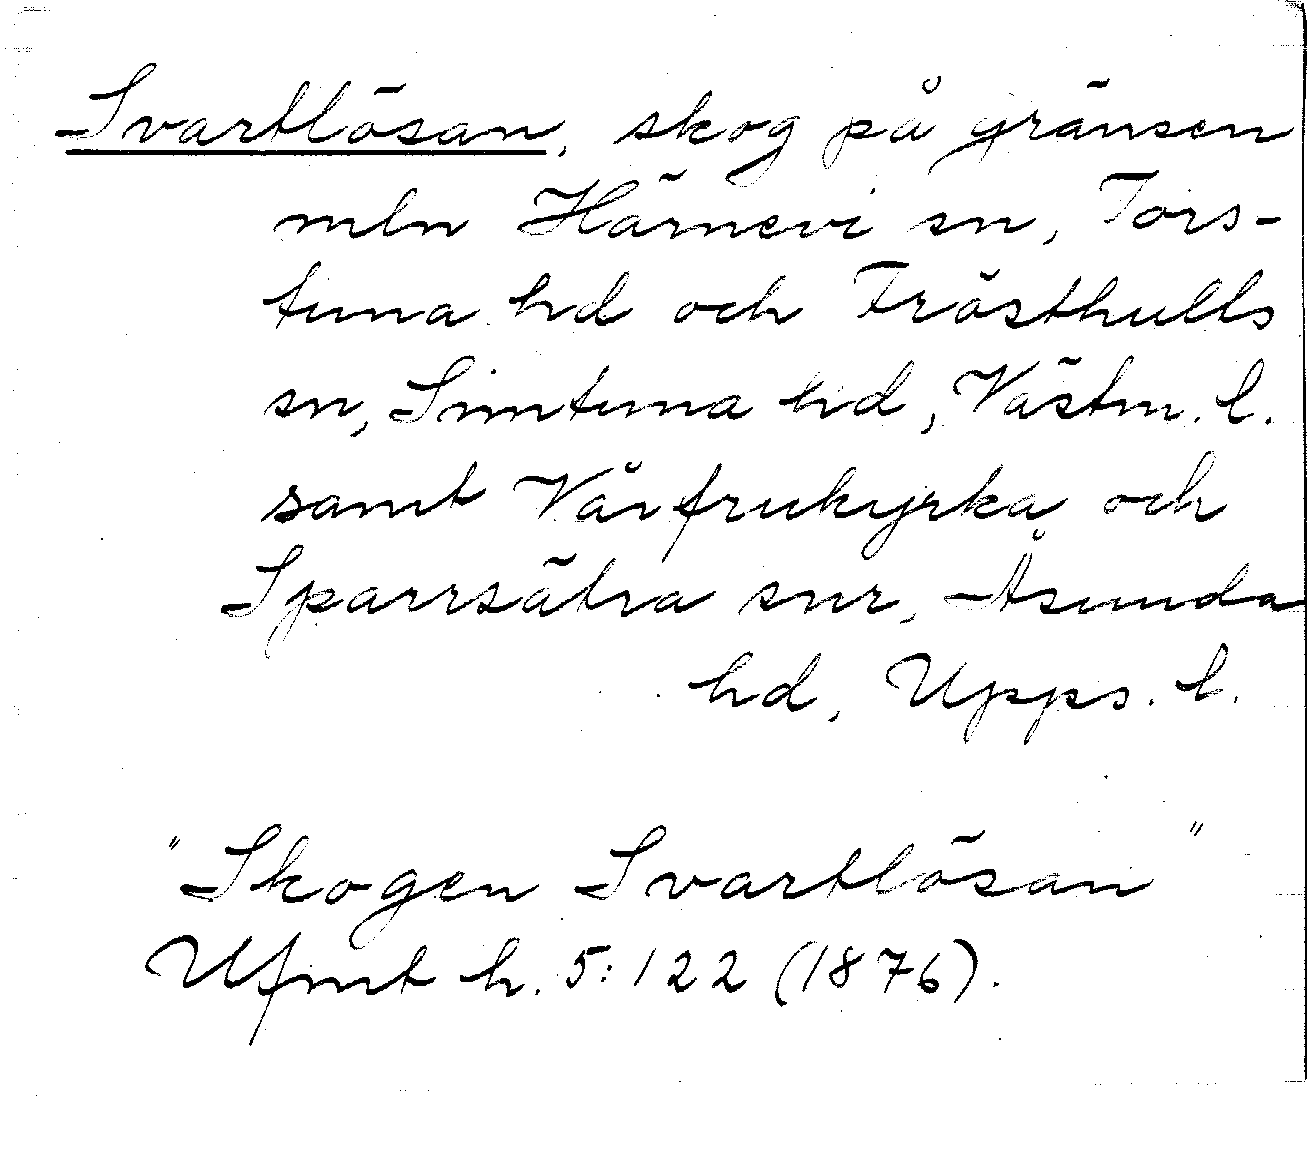 Svartlösan, skog på gränsen
mln Härnevi sn, Tors-
tuna hd och Frösthults
sn, Simtuna hd, Västm. l.
samt Vårfrukyrka och
Sparrsätra snr, Åsunda
hd, Upps. l.
"Skogen Svartlösan"
Ufmt h. 5:122 (1876).